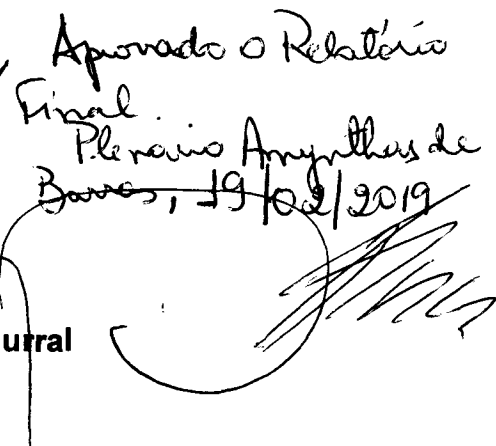 Aprovado o Relatório
Final.
Plenário Amynthas de
Barros, 19/02/2019
urral